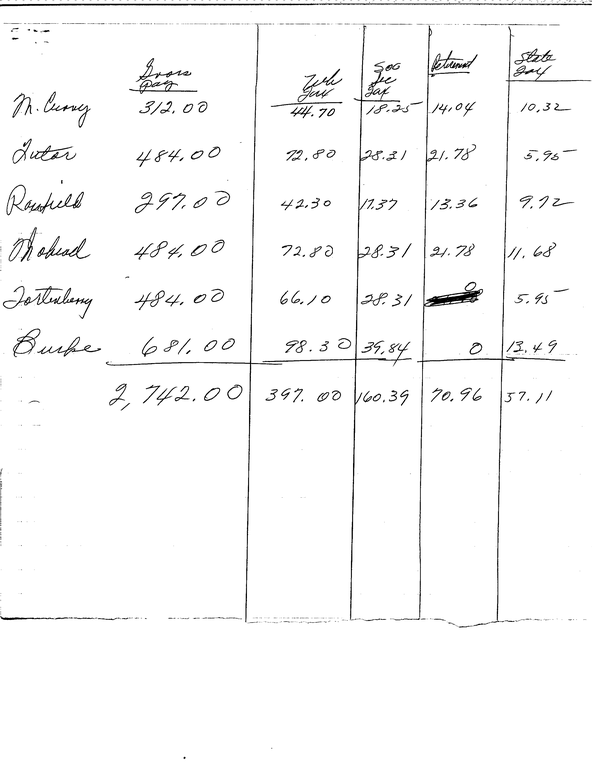 Gross Pay Wh Tax Soc Sec Tax Retirement State Tax
M. Curry 312.00 44.70 18.25 14.04 10.32
Tutor 484.00 72.80 28.31 21.78 5.95
297.00 42.30 17.37 13.36 9.72
484.00 72.80 28.31 21.78 11.68
Fortenberry 484.00 66.10 28.31 0 5.95
Burke 681.00 98.30 39.84 0 13.49
2,742.00 397.00 160.39 70.96 57.11